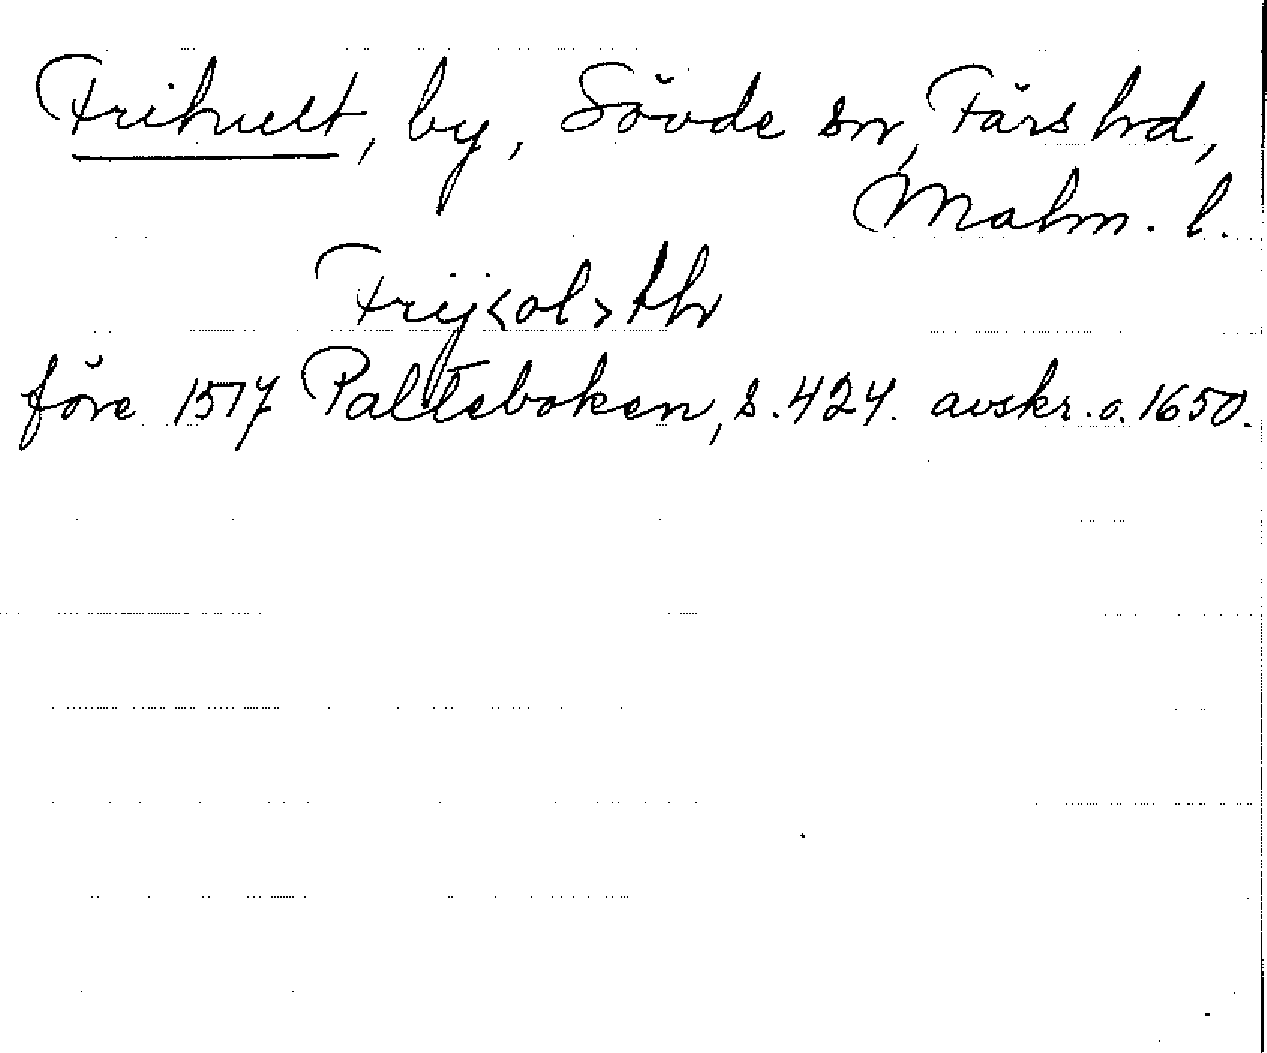 Frihult, by, Sövde sn, Färs hd,
Malm. l.
Frij<ol>thr
före 1517 Palteboken, s. 424. avskr. o. 1650.